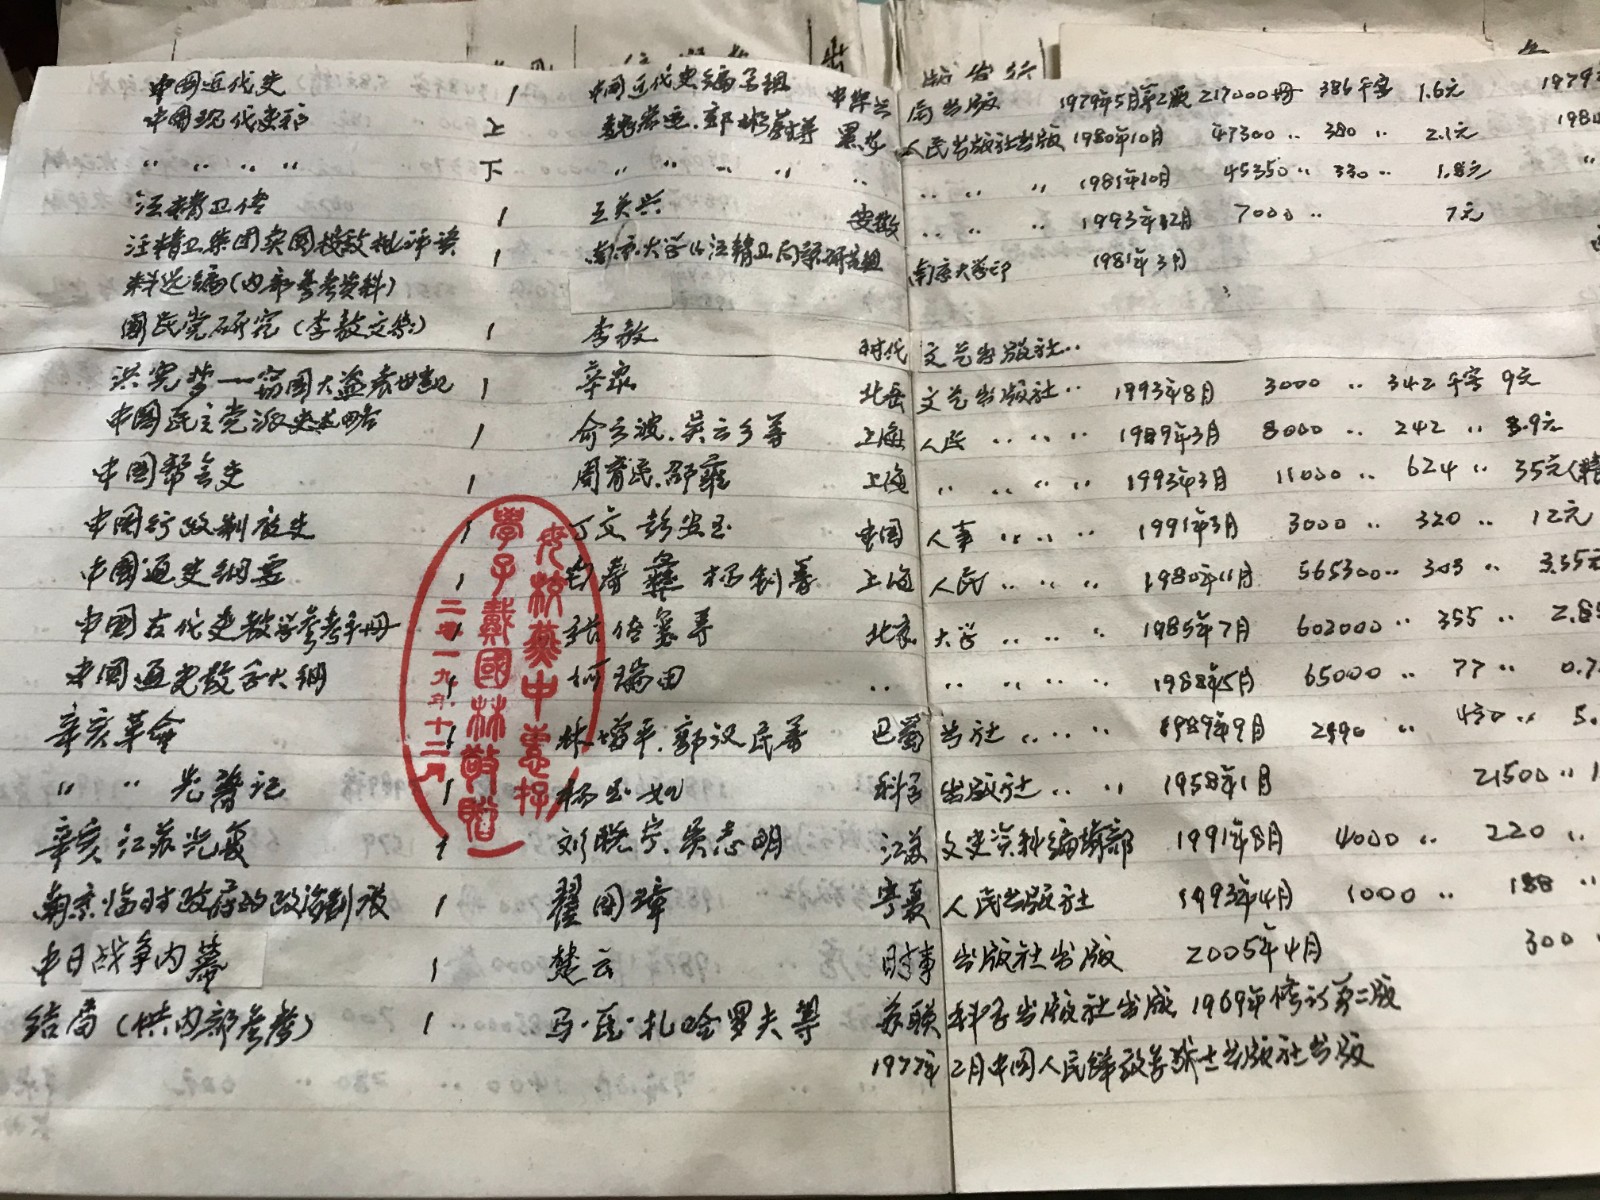 中国近代史 1 中国近代史编写组 中华书局出版 1979年5月第2版 217000册 386千字 1.6元 1979
中国现代史稿 上 郭彬蔚等 黑龙 人民出版社出版 1980年10月 47300 〃 380 〃 2.1元 198
〃 〃 〃 〃 下 〃 〃 〃 〃 〃 〃 〃 〃 1981年10月 45350 〃 330 〃 1.8元 〃
汪精卫传 1 王关兴 安徽 〃 〃 〃 1993年12月 7000 〃 7元
汪精卫集团卖国投敌批判资 1 南京大学 汪精卫问题研究组 南京大学印 1981年3月
料选编(内部参考资料)
国民党研究(李敖文集) 1 李敖 时代 文艺出版社 〃
洪宪梦——窃国大盗袁世凯 1 辛 北岳 文艺出版社 〃 1993年8月 3000 〃 342千字 9元
中国民主党派史述略 1 俞云波、吴云乡等 上海 人民 〃 〃 〃 〃 1989年3月 8000 〃 242 〃 3.9元
中国帮会史 1 周育民、邵雍 上海 〃 〃 〃 〃 〃 1993年3月 11000 〃 624 〃 35元(精
中国行政制度史 1 丁文 彭安玉 中国 人事 〃 〃 〃 1991年3月 3000 〃 320 〃 12元
中国通史纲要 1 白寿彝 杨钊等 上海 人民 〃 〃 〃 1980年11月 565300 〃 303 〃 3.35元
中国古代史教学参考手册 1 张传玺等 北京 大学 〃 〃 〃 1985年7月 602000 〃 355 〃 2.8
中国通史教学大纲 1 何瑞田 〃 〃 〃 〃 〃 〃 1988年5月 65000 〃 77 〃 0.7
辛亥革命 1 林增平、郭汉民等 巴蜀 书社 〃 〃 〃 1989年9月 2990 〃 430 〃 5.
〃 〃 先著记 1 杨玉如 科学 出版社 〃 〃 1958年1月 21500 〃 1
辛亥江苏光复 1 刘晓宁、吴志明 江苏 文史资料编辑部 1991年8月 4000 〃 220 〃
南京临时政府的政治制度 1 瞿国璋 宁夏 人民出版社 1993年4月 1000 〃 188 〃
中日战争内幕 1 楚云 时事 出版社出版 2005年4月 300
结局(供内部参考) 1 马·瓦·扎哈罗夫等 苏联 科学出版社出版 1969年修订第二版
1977年2月中国人民解放军战士出版社出版
母校蒸中惠存
學子戴國林敬贈
二零一九年十二月